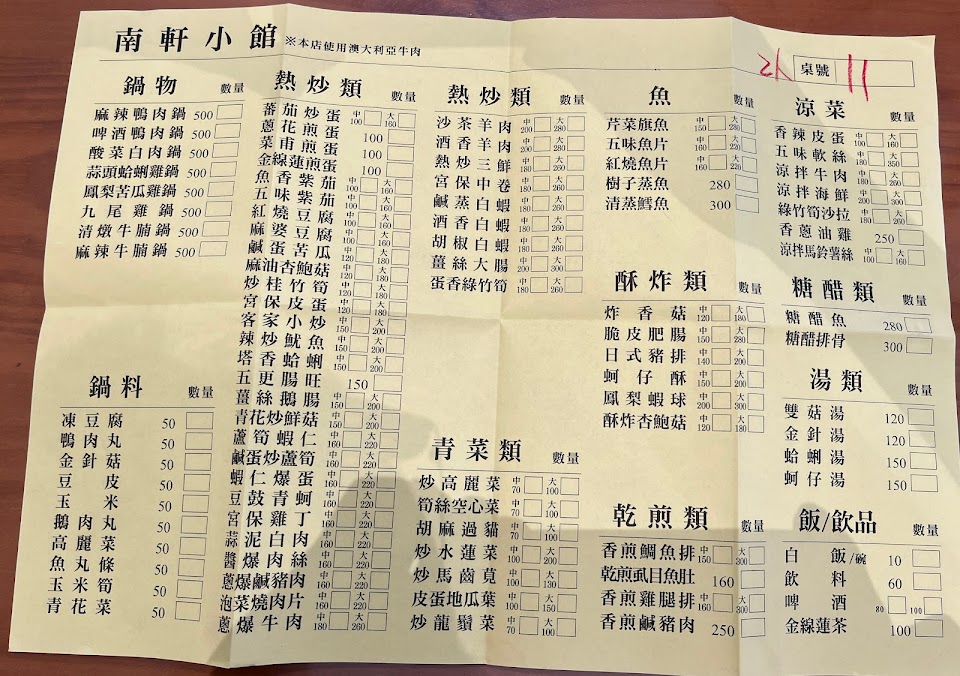 南軒小館 ※本店使用澳大利亞牛肉
2人 桌號 11
鍋物 數量
麻辣鴨肉鍋 500
啤酒鴨肉鍋 500
酸菜白肉鍋 500
蒜頭蛤蜊雞鍋 500
鳳梨苦瓜雞鍋 500
九尾雞鍋 500
清燉牛腩鍋 500
麻辣牛腩鍋 500
鍋料 數量
凍豆腐 50
鴨肉丸 50
金針菇 50
豆皮 50
玉米 50
鵝肉丸 50
高麗菜 50
魚丸條 50
玉米筍 50
青花菜 50
熱炒類 數量
蕃茄炒蛋 中100 大160
蔥花煎蛋 100
菜甫煎蛋 100
金線蓮煎蛋 160
魚香紫茄 中100 大160
五味紫茄 中100 大160
紅燒豆腐 中100 大160
麻婆豆腐 中100 大160
鹹蛋苦瓜 中120 大180
麻油杏鮑菇 中120 大180
炒桂竹筍 中120 大180
宮保皮蛋 中120 大180
客家小炒 中150 大200
辣炒魷魚 中150 大200
塔香蛤蜊 中150 大200
五更腸旺 150
薑絲鵝腸 中150 大200
青花炒鮮菇 中150 大200
蘆筍蝦仁 中160 大220
鹹蛋炒蘆筍 中160 大220
蝦仁爆蛋 中160 大220
豆鼓青蚵 中160 大220
宮保雞丁 中160 大220
蒜泥白肉 中160 大220
醬爆肉絲 中160 大220
蔥爆鹹豬肉 中160 大220
泡菜燒肉片 中160 大220
蔥爆牛肉 中180 大260
熱炒類 數量
沙茶羊肉 中200 大280
酒香羊肉 中200 大280
熱炒三鮮 中180 大260
宮保中卷 中180 大260
鹹蒸白蝦 中180 大260
酒香白蝦 中180 大260
胡椒白蝦 中180 大260
薑絲大腸 中200 大300
蛋香綠竹筍 中180 大260
青菜類 數量
炒高麗菜 中70 大100
筍絲空心菜 中70 大100
胡麻過貓 中100 大150
炒水蓮菜 中100 大200
炒馬齒莧 中100 大130
皮蛋地瓜葉 中100 大150
炒龍鬚菜 中70 大100
魚 數量
芹菜旗魚 中150 大280
五味魚片 中160 大220
紅燒魚片 中160 大220
樹子蒸魚 280
清蒸鱈魚 300
酥炸類 數量
炸香菇 中120 大180
脆皮肥腸 中120 大180
日式豬排 中140 大200
蚵仔酥 中150 大200
鳳梨蝦球 中200 大300
酥炸杏鮑菇 中120 大180
乾煎類 數量
香煎鯛魚排 中150 大300
乾煎虱目魚肚 160
香煎雞腿排 中160 大300
香煎鹹豬肉 250
涼菜 數量
香辣皮蛋 中100 大160
五味軟絲 中180 大350
涼拌牛肉 中180 大260
涼拌海鮮 中180 大260
綠竹筍沙拉 中120 大200
香蔥油雞 250
涼拌馬鈴薯絲 中100 大160
糖醋類 數量
糖醋魚 280
糖醋排骨 300
湯類 數量
雙菇湯 120
金針湯 120
蛤蜊湯 150
蚵仔湯 150
飯/飲品 數量
白飯/碗 10
飲料 60
啤酒 80 100
金線蓮茶 100